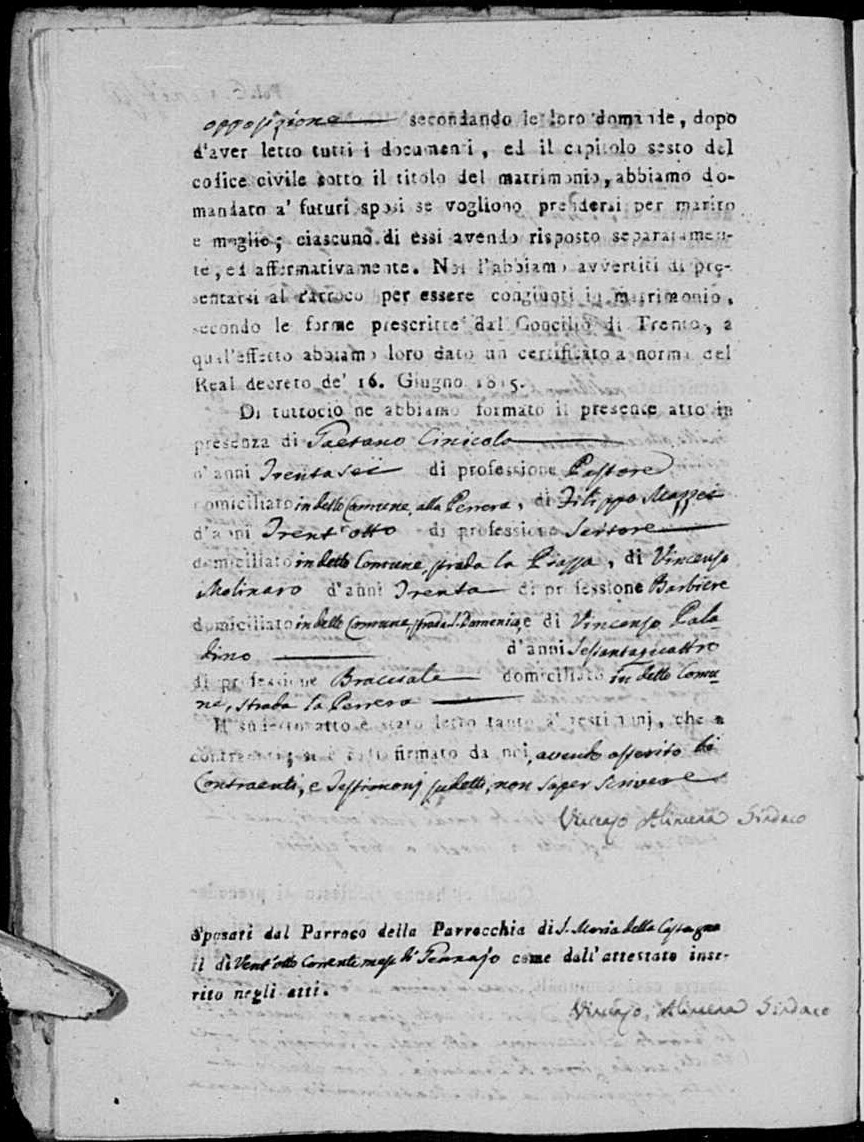 opposizione secondando le loro domande, dopo
d'aver letto tutti i documenti, ed il capitolo sesto del
codice civile sotto il titolo del matrimonio, abbiamo do-
mandato a' futuri sposi se vogliono prendersi per marito
e moglie; ciascuno di essi avendo risposto separatamen-
te, ed affermativamente. Noi l'abbiamo avvertiti di pre-
sentarsi al Parroco per essere congiunti in matrimonio,
secondo le forme prescritte dal Concilio di Trento, a
qual'effetto abbiamo loro dato un certificato a norma del
Real decreto de' 16. Giugno 1815.
Di tuttociò ne abbiamo formato il presente atto in
presenza di Gaetano Cinicola
d'anni Trentasei di professione Pastore
domiciliato in detto Comune, alla Perrera, di Filippo Mazzei
d'anni Trent'otto di professione Sartore
domiciliato in detto Comune, strada la Piazza, di Vincenzo
Molinaro d'anni Trenta di professione Barbiere
domiciliato in detto Comune, strada S. Domenica, e di Vincenzo Pala
dino d'anni Sessantaquattro
di professione Bracciale domiciliato in detto Comu-
ne, strada la Perrera
Il sudetto atto è stato letto tanto a' testimonj, che a
contraenti; si è firmato da noi, avendo asserito li
Contraenti, e Testimonj sudetti, non saper scrivere
Vincenzo Alimena Sindaco
Sposati dal Parroco della Parrocchia di S. Maria della Castagna
il dì Vent'otto Corrente mese di Gennajo come dall'attestato inse-
rito negli atti.
Vincenzo Alimena Sindaco